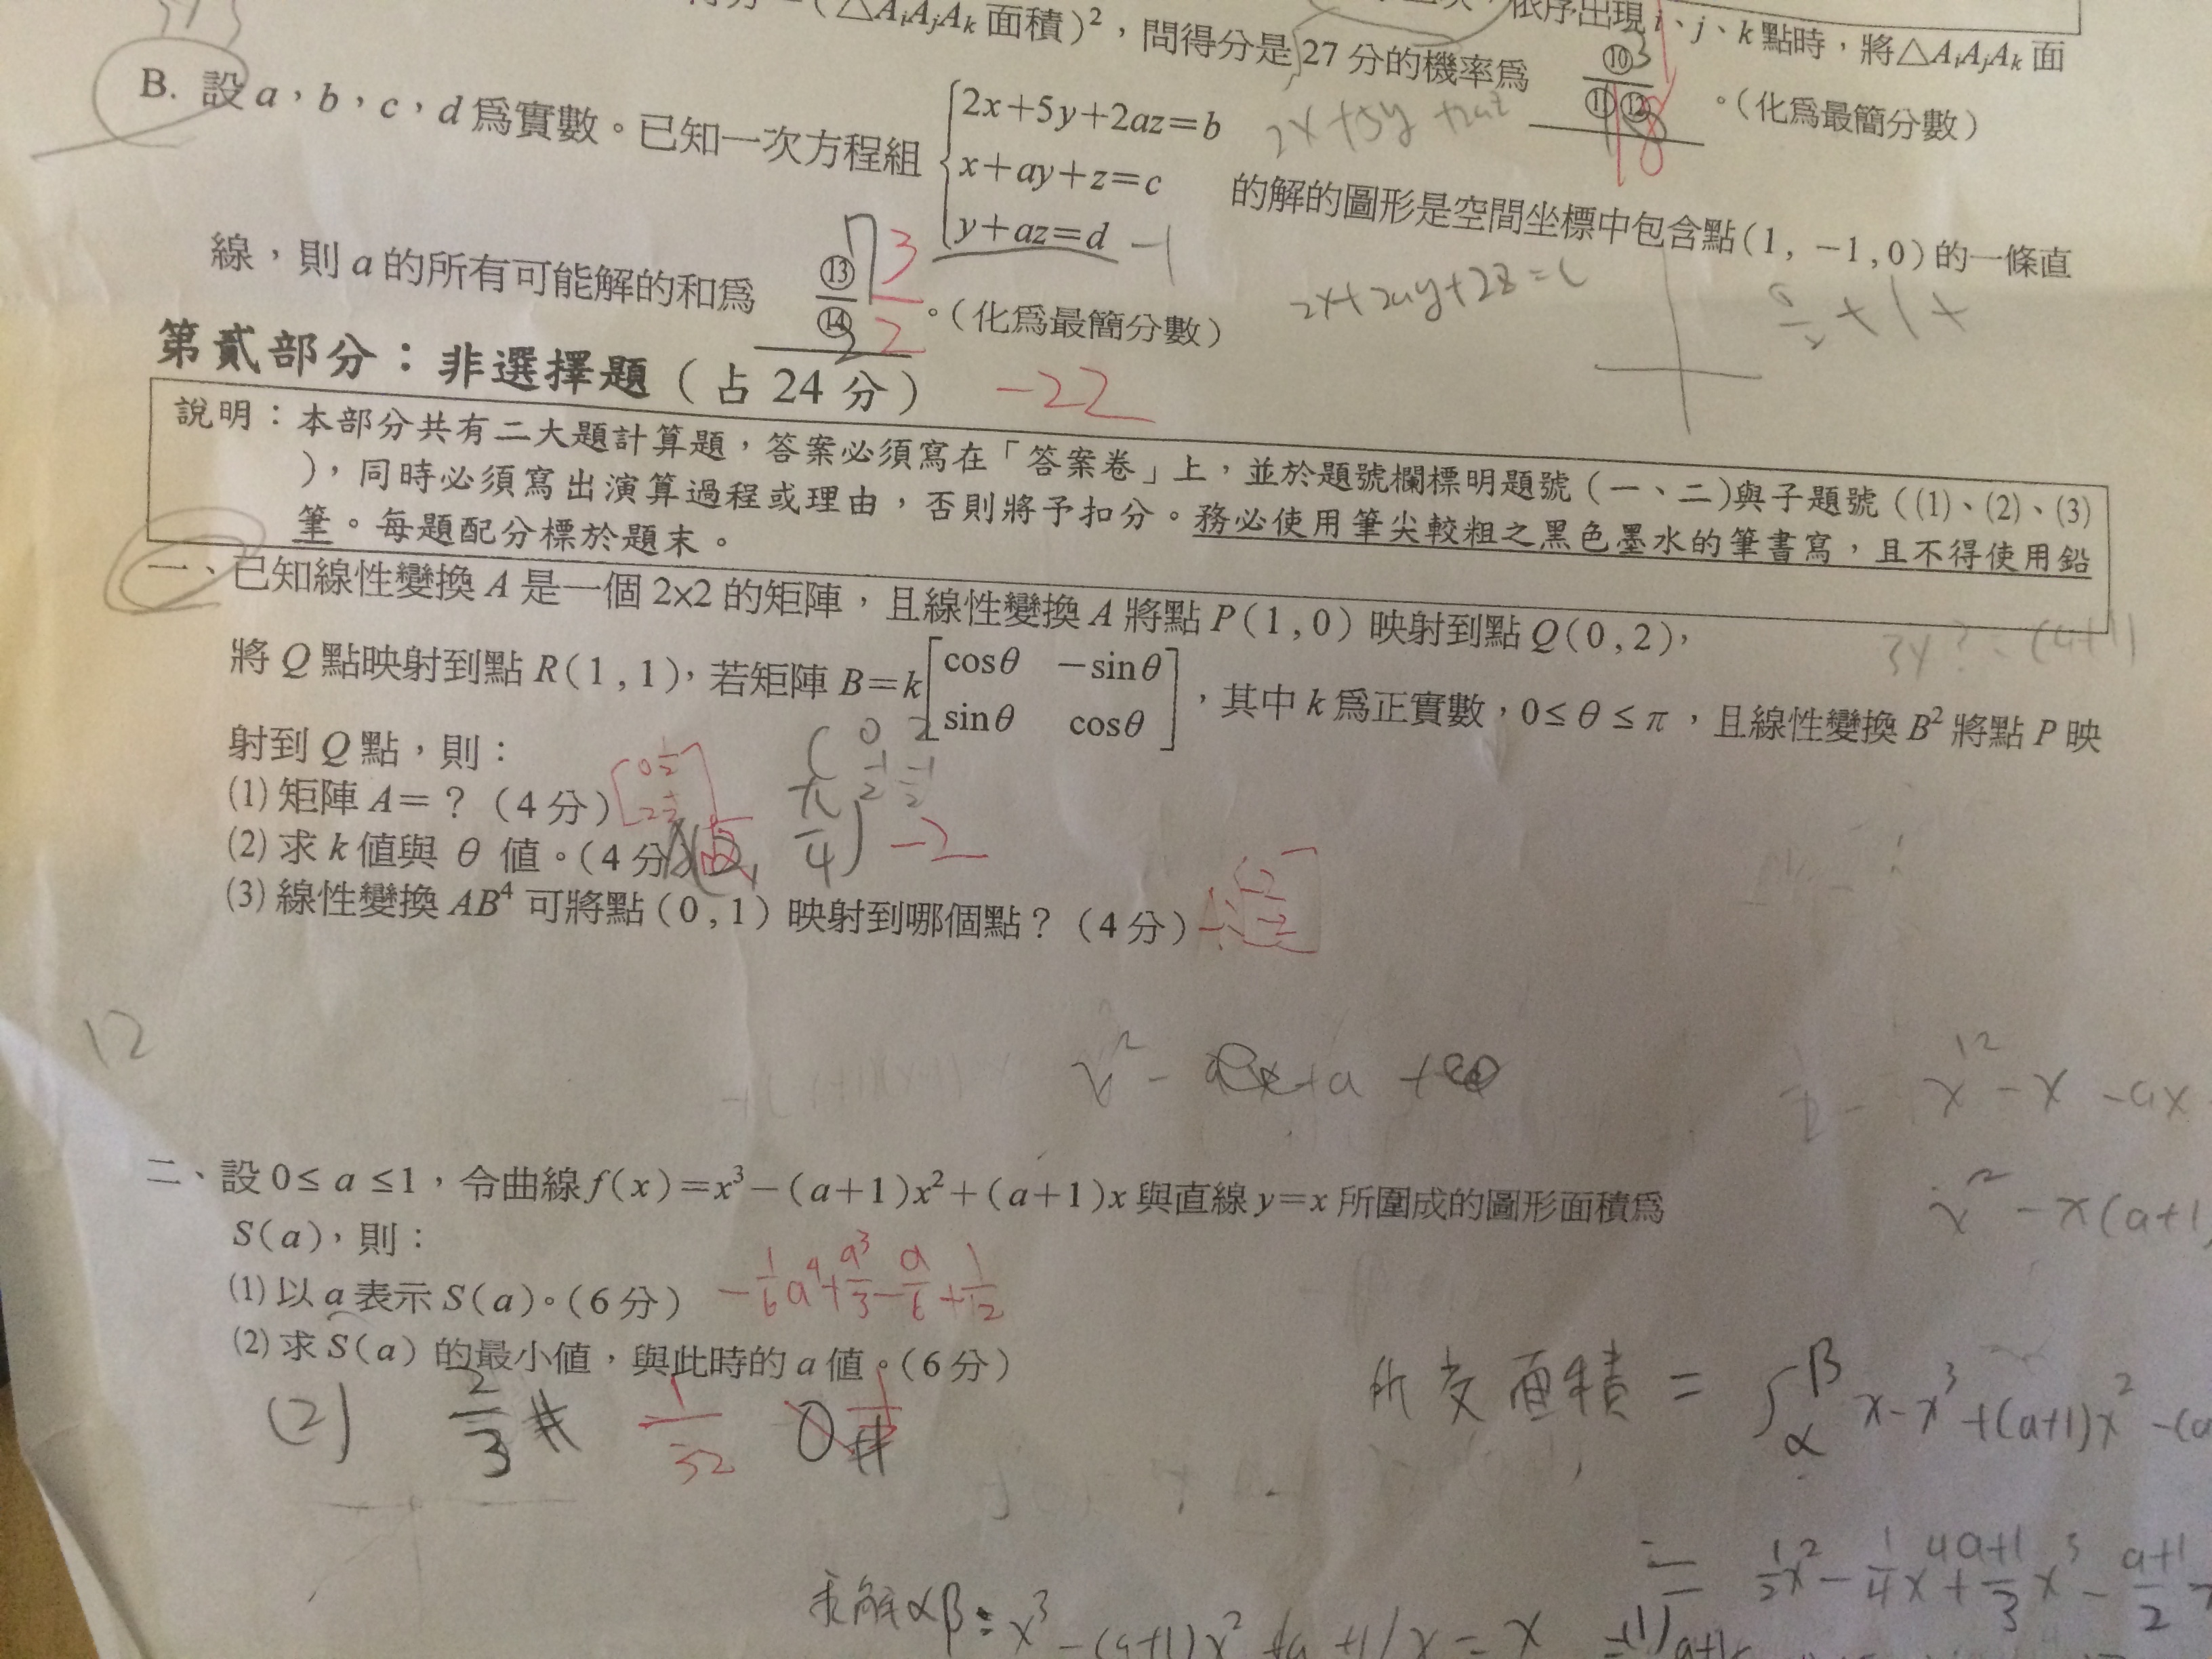 △AᵢAⱼAₖ 面積)²,問得分是 27 分的機率為 ⑩/⑪⑫ 。(化為最簡分數)
依序出現 i、j、k 點時,將△AᵢAⱼAₖ 面
3
18
B. 設 a,b,c,d 為實數。已知一次方程組 { 2x+5y+2az=b
x+ay+z=c
y+az=d
的解的圖形是空間坐標中包含點(1, −1,0)的一條直
2x+5y+2az
-1
線,則 a 的所有可能解的和為 ⑬/⑭ 。(化為最簡分數)
7 3
2 2
2x+2ay+2z=c
第貳部分:非選擇題(占 24 分)
-22
說明:本部分共有二大題計算題,答案必須寫在「答案卷」上,並於題號欄標明題號(一、二)與子題號((1)、(2)、(3)
),同時必須寫出演算過程或理由,否則將予扣分。務必使用筆尖較粗之黑色墨水的筆書寫,且不得使用鉛
筆。每題配分標於題末。
一、已知線性變換 A 是一個 2×2 的矩陣,且線性變換 A 將點 P(1,0)映射到點 Q(0,2),
將 Q 點映射到點 R(1,1),若矩陣 B=k[cosθ −sinθ
sinθ cosθ],其中 k 為正實數,0≤θ≤π,且線性變換 B² 將點 P 映
射到 Q 點,則:
(1) 矩陣 A=?(4 分)
[0 1/2
2 1/2]
(2) 求 k 值與 θ 值。(4 分)
π/4) -2
(3) 線性變換 AB⁴ 可將點(0,1)映射到哪個點?(4 分)
12
x²-x-ax
x²-x(a+1)
二、設 0≤ a ≤1,令曲線 f(x)=x³−(a+1)x²+(a+1)x 與直線 y=x 所圍成的圖形面積為
S(a),則:
(1) 以 a 表示 S(a)。(6 分)
-1/6 a⁴+a³/3-a/6+1/12
(2) 求 S(a) 的最小值,與此時的 a 值。(6 分)
(2) 2/3# 1/32 0#
所夾面積 = ∫αβ x-x³+(a+1)x²-(a
= 1/2x²-1/4x⁴+a+1/3x³-a+1/2
求解αβ: x³-(a+1)x²+(a+1)x=x